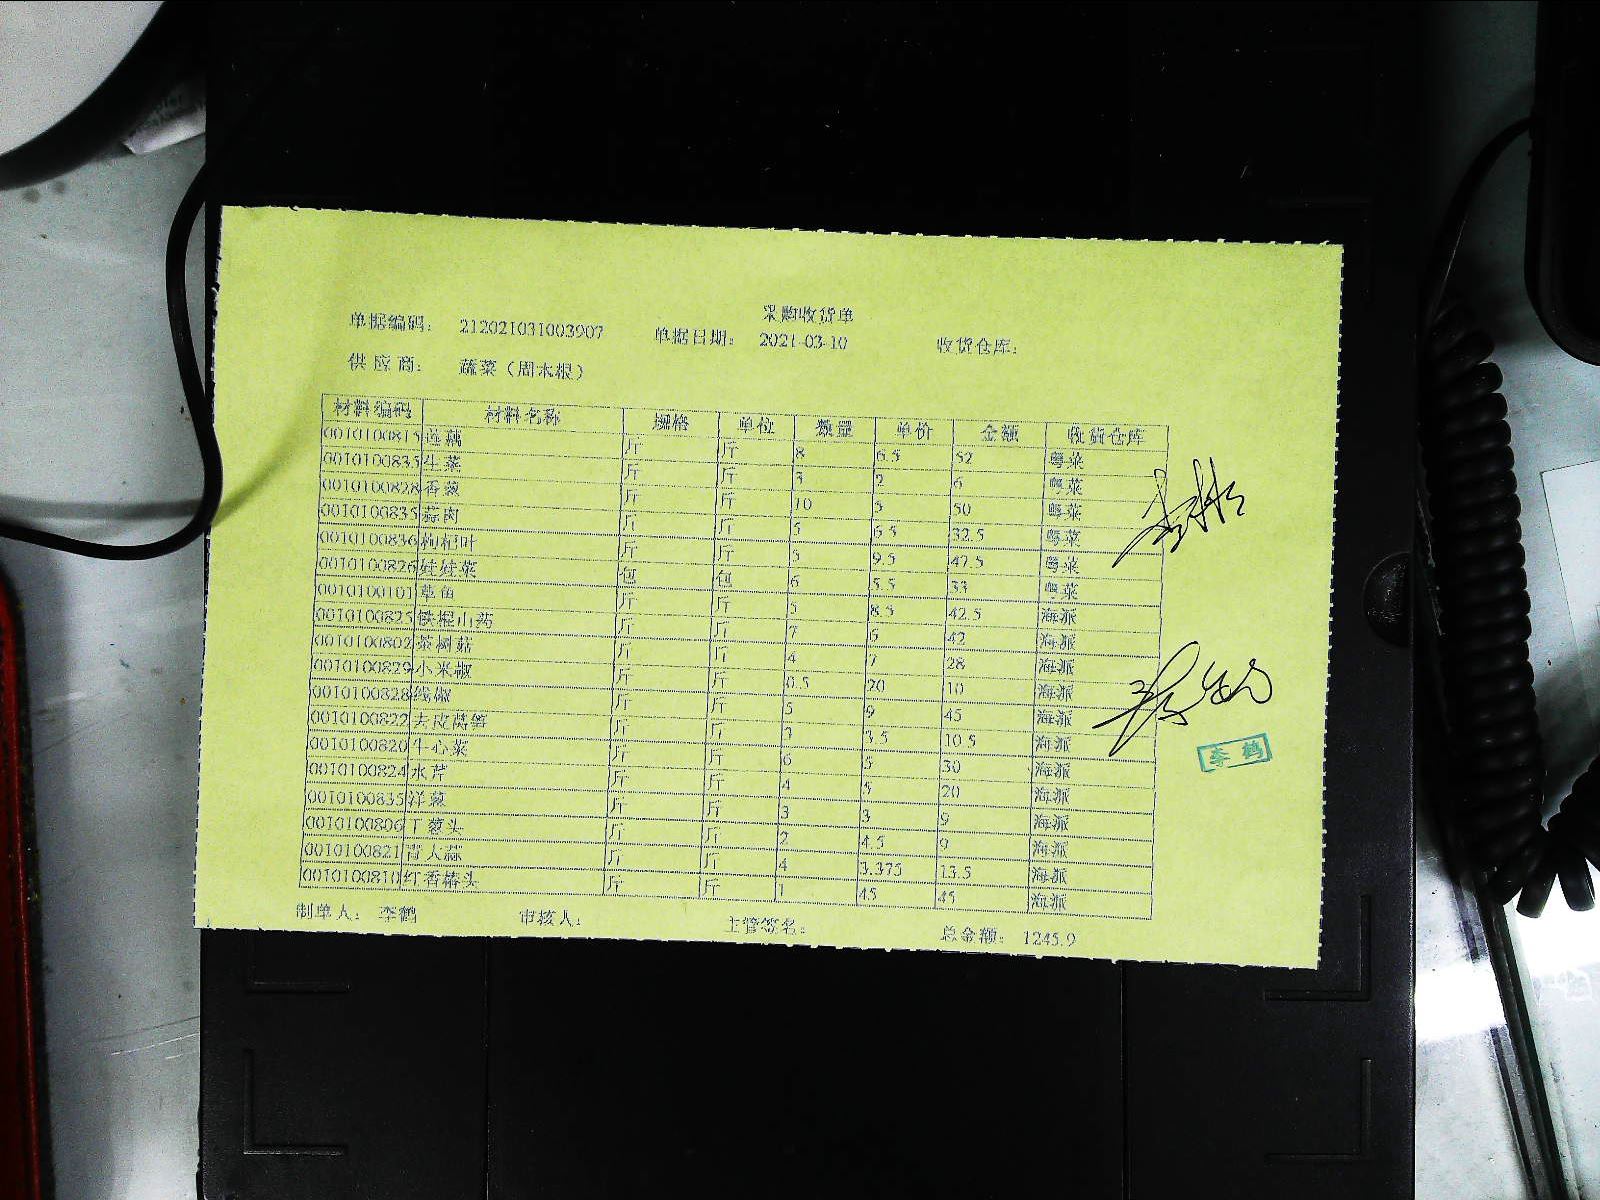 采购收货单
单据编码： 212021031003907 单据日期： 2021-03-10 收货仓库：
供应商： 蔬菜（周木根）
材料编码 材料名称 规格 单位 数量 单价 金额 收货仓库
0010100815 莲藕 斤 斤 8 6.5 52 粤菜
0010100835 生菜 斤 斤 3 2 6 粤菜
0010100828 香葱 斤 斤 10 5 50 粤菜
0010100835 蒜肉 斤 斤 5 6.5 32.5 粤菜
0010100836 枸杞叶 斤 斤 5 9.5 47.5 粤菜
0010100826 娃娃菜 包 包 6 5.5 33 粤菜
0010100101 草鱼 斤 斤 5 8.5 42.5 海派
0010100825 铁棍山药 斤 斤 7 6 42 海派
0010100802 茶树菇 斤 斤 4 7 28 海派
0010100829 小米椒 斤 斤 0.5 20 10 海派
0010100828 线椒 斤 斤 5 9 45 海派
0010100822 去皮莴笋 斤 斤 3 3.5 10.5 海派
0010100820 牛心菜 斤 斤 6 5 30 海派
0010100824 水芹 斤 斤 4 5 20 海派
0010100835 洋葱 斤 斤 3 3 9 海派
0010100806 干葱头 斤 斤 2 4.5 9 海派
0010100821 青大蒜 斤 斤 4 3.375 13.5 海派
0010100810 红香椿头 斤 斤 1 45 45 海派
李鹤
制单人： 李鹤 审核人： 主管签名： 总金额： 1245.9